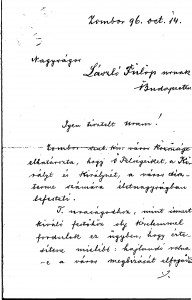 Zombor 96. oct. 14.
Nagyságos
László Fülöp urnak
Budapesten
Igen tisztelt Uram!
Zombor szab. kir. város közönsége
elhatározta, hogy ő Felségeiket, a Ki-
rályt és Királynét, a város disz-
terme számára életnagyságban
lefesteti.
T. uraságodhoz, mint ismert
kiváló festőhöz oly kérelemmel
fordulok ez ügyben, hogy érte-
siteni mielőbb: hajlandó volna
-e a város megbizását elfogadni